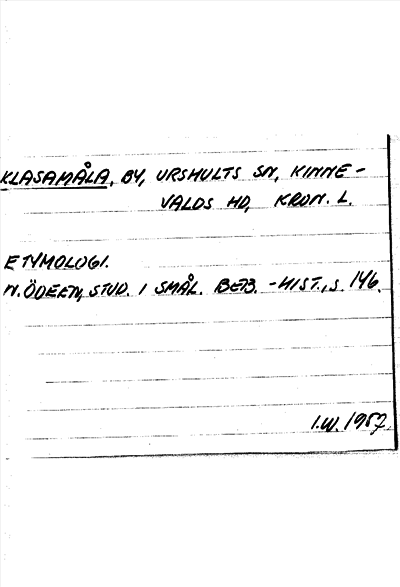 KLASAMÅLA, BY, URSHULTS SN, KINNE-
VALDS HD, KRON. L.
ETYMOLOGI.
N. ÖDEEN, STUD. I SMÅL. BEB.-HIST., S. 146.
I.W. 1957.